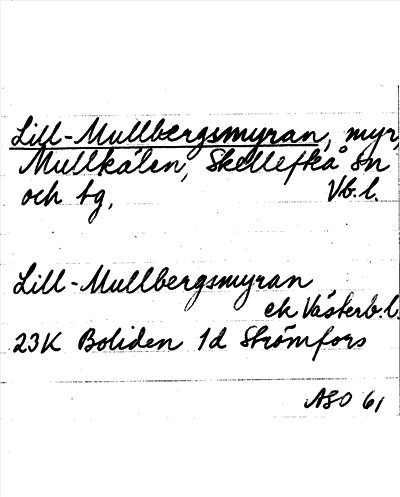 Lill-Mullbergsmyran, myr,
Mullkälen, Skellefteå sn
och tg, Vb.l.
Lill-Mullbergsmyran
ek Västerb.l.
23K Boliden 1d Strömfors
ASO 61